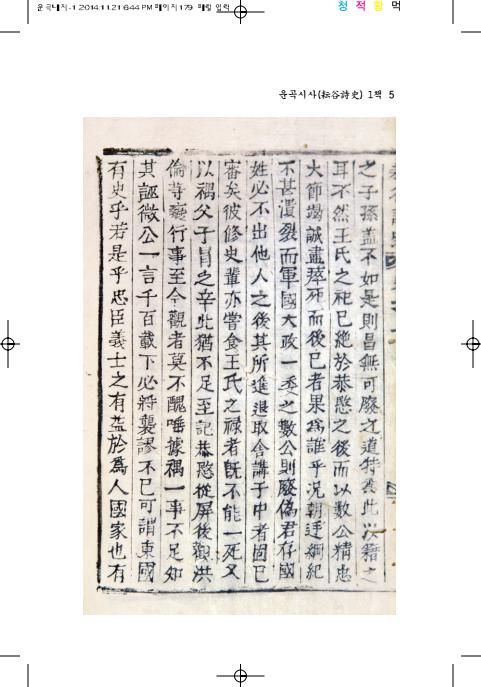 운곡대지-1 2014.11.21 6:44 PM 페이지179 매킹 입력
청 적 황 먹
운곡시사(耘谷詩史) 1책 5
之子孫盖不如是則昌無可廢之道特爲此以藉之
耳不然王氏之祀已絶於恭愍之後而以數公精忠
大節竭誠盡瘁死而後已者果爲誰乎况朝廷綱紀
不甚潰裂而軍國大政一委之數公則廢僞君存國
姓必不出他人之後其所進退取舍講于中者固已
審矣彼修史輩亦嘗食王氏之祿者旣不能一死又
以禑父子冐之辛此猶不足至記恭愍從屏後觀洪
倫等褻行事至今觀者莫不醜唾據禑一事不足知
其誣微公一言千百載下必將襲謬不已可謂東國
有史乎若是乎忠臣義士之有益於爲人國家也有